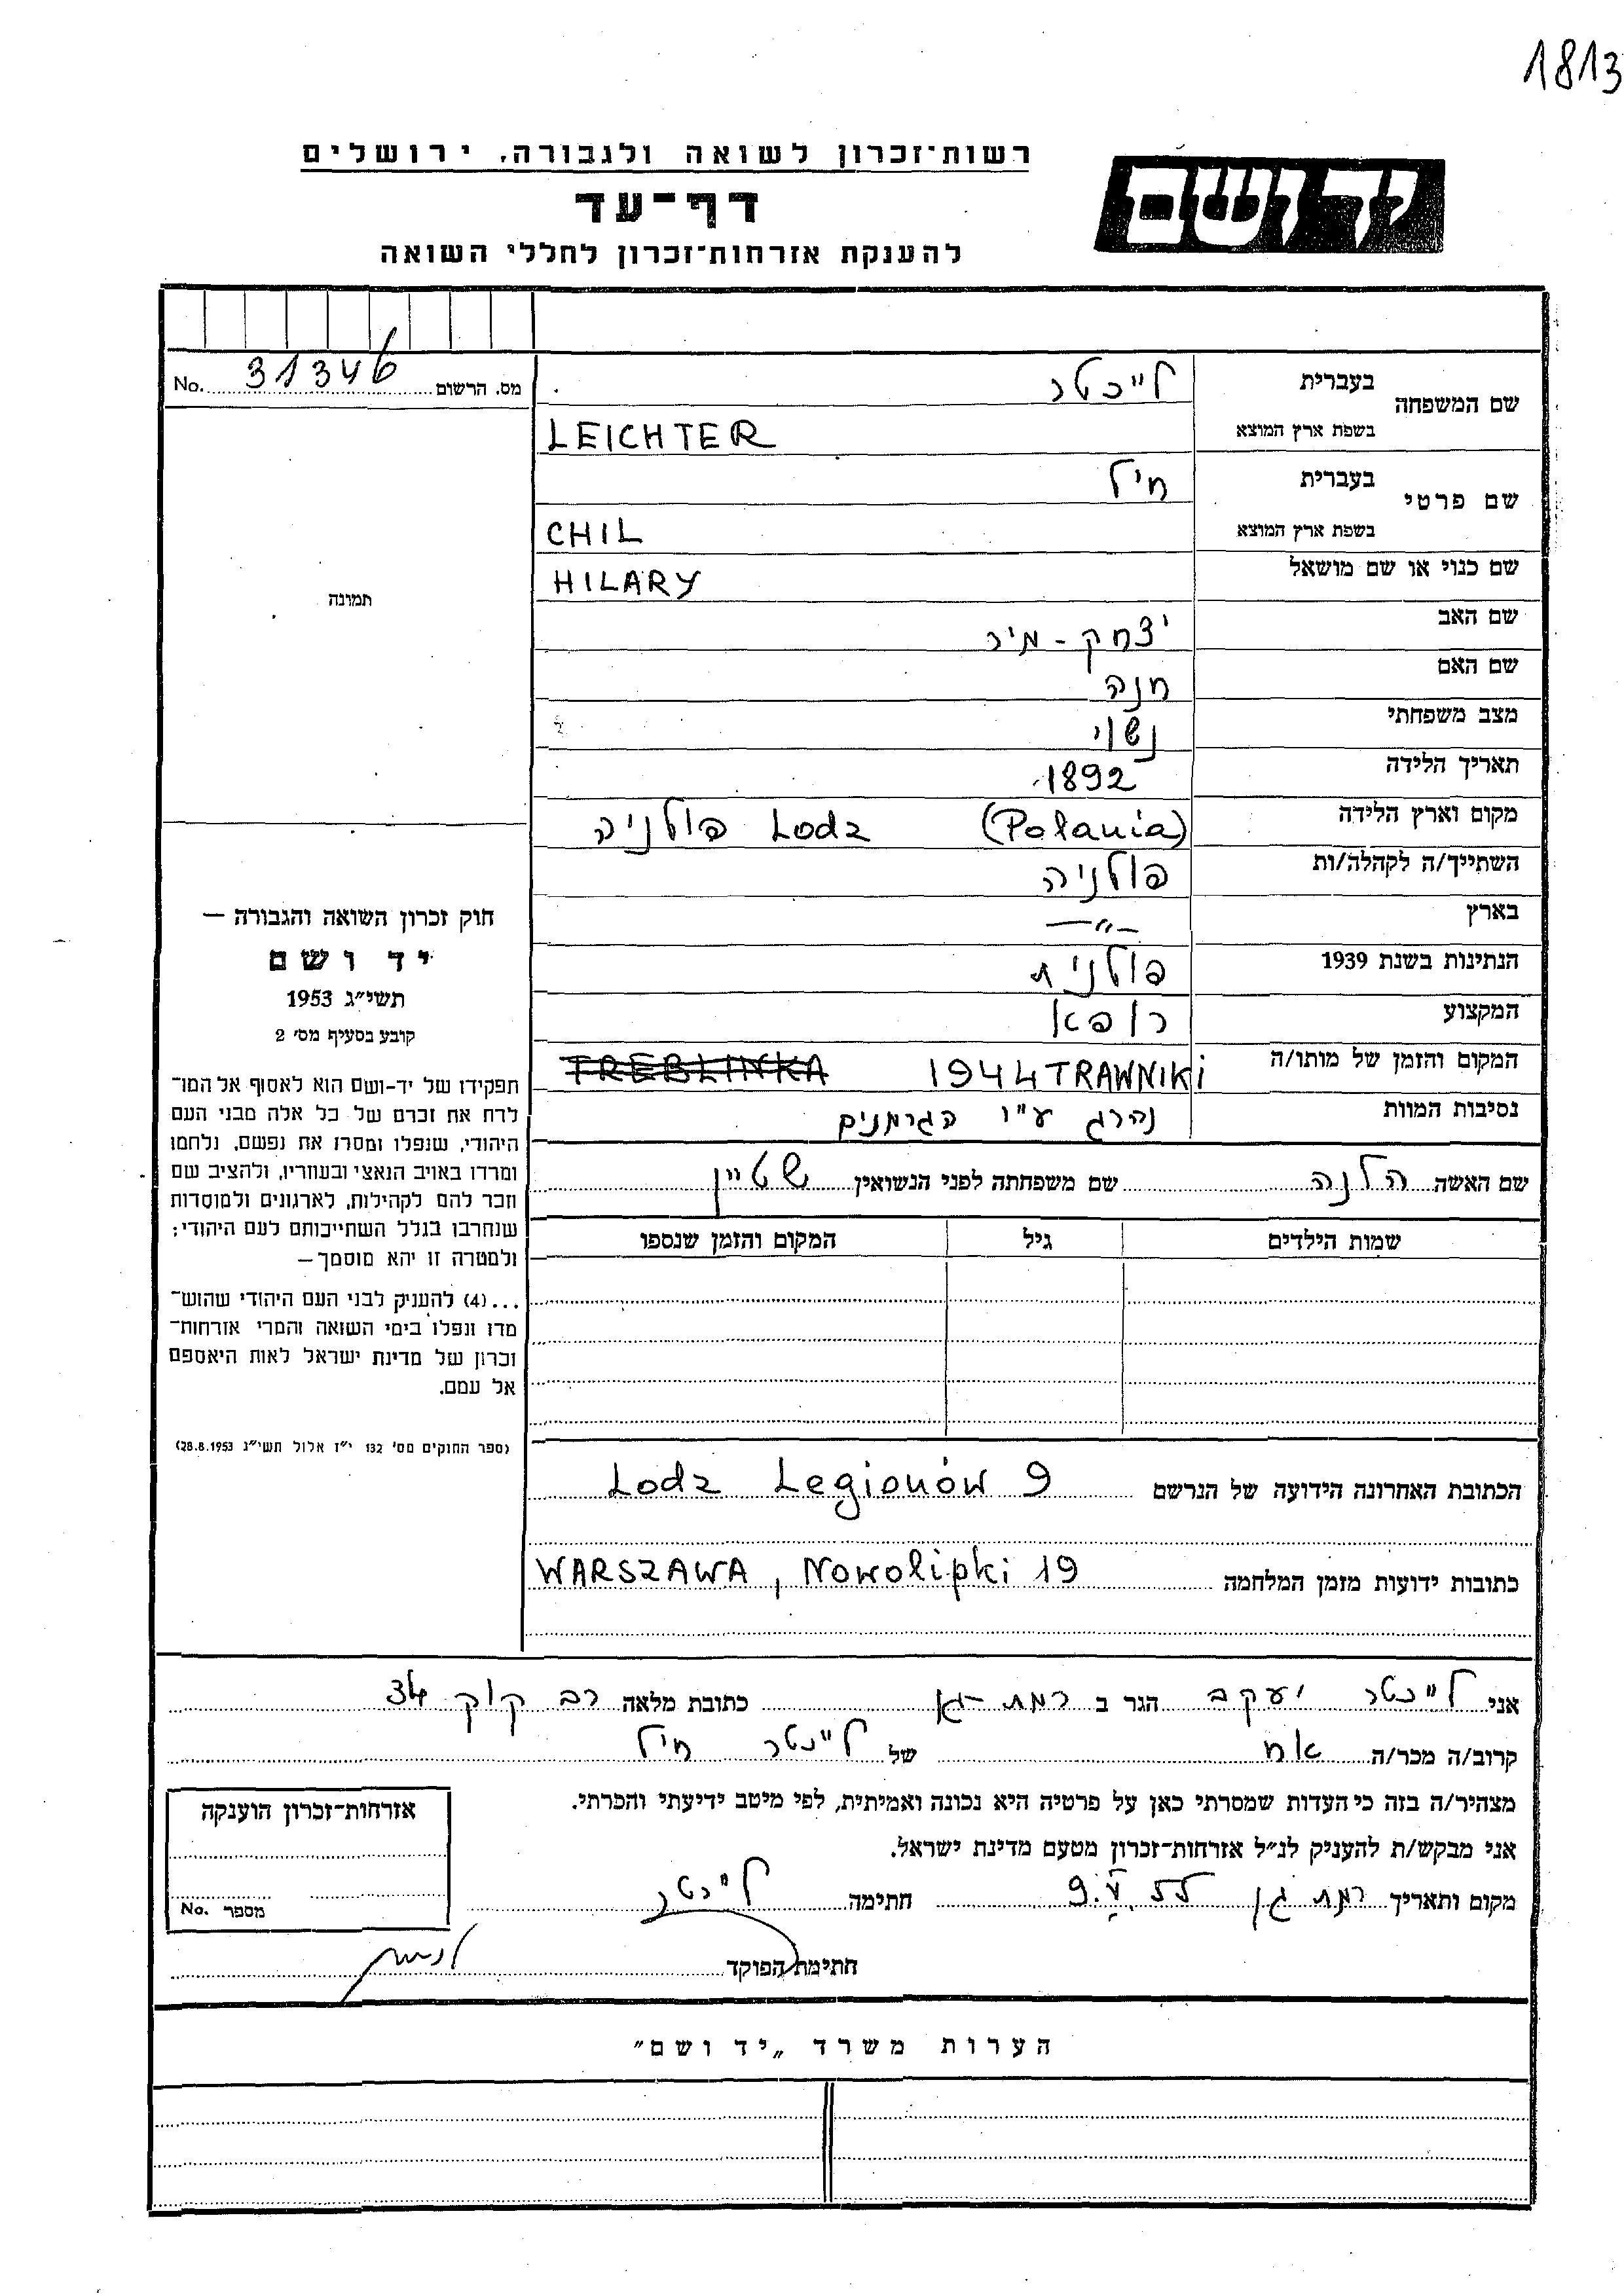 1813
רשות־זכרון לשואה ולגבורה, ירושלים
יד ושם
דף־עד
להענקת אזרחות־זכרון לחללי השואה
מס. הרשום 31346 No.
שם המשפחה
בעברית
לייכטר
בשפת ארץ המוצא
LEICHTER
שם פרטי
בעברית
חיל
בשפת ארץ המוצא
CHIL
שם כנוי או שם מושאל HILARY
שם האב יצחק - מיר
שם האם חנה
מצב משפחתי נשוי
תאריך הלידה 1892
מקום וארץ הלידה (Polania) Lodz פולניה
השתייך/ה לקהלה/ות פולניה
בארץ –״–
הנתינות בשנת 1939 פולנית
המקצוע רופא
המקום והזמן של מותו/ה 1944 TRAWNIKI TREBLINKA
נסיבות המוות נהרג ע"י הגרמנים
שם האשה הלנה שם משפחתה לפני הנשואין שטיין
שמות הילדים גיל המקום והזמן שנספו
תמונה
חוק זכרון השואה והגבורה –
יד ושם
תשי״ג 1953
קובע בסעיף מס׳ 2
תפקידו של יד-ושם הוא לאסוף אל המו־
לדת את זכרם של כל אלה מבני העם
היהודי, שנפלו ומסרו את נפשם, נלחמו
ומרדו באויב הנאצי ובעוזריו, ולהציב שם
וזכר להם לקהילות, לארגונים ולמוסדות
שנחרבו בגלל השתייכותם לעם היהודי;
ולמטרה זו יהא מוסמך–
...(4) להעניק לבני העם היהודי שהוש־
מדו ונפלו בימי השואה והמרי אזרחות־
זכרון של מדינת ישראל לאות היאספם
אל עמם.
(ספר החוקים מס׳ 132 י״ז אלול תשי״ג 28.8.1953)
הכתובת האחרונה הידועה של הנרשם Lodz Legionów 9
כתובות ידועות מזמן המלחמה WARSZAWA, Nowolipki 19
אני לייכטר יעקב הגר ב רמת-גן כתובת מלאה רב קוק 34
קרוב/ה מכר/ה אח של לייכטר חיל
מצהיר/ה בזה כי העדות שמסרתי כאן על פרטיה היא נכונה ואמיתית, לפי מיטב ידיעתי והכרתי.
אני מבקש/ת להעניק לנ״ל אזרחות־זכרון מטעם מדינת ישראל.
מקום ותאריך רמת גן 9.V.55 חתימה לייכטר
חתימת הפוקד
אזרחות־זכרון הוענקה
מספר No.
הערות משרד „יד ושם״